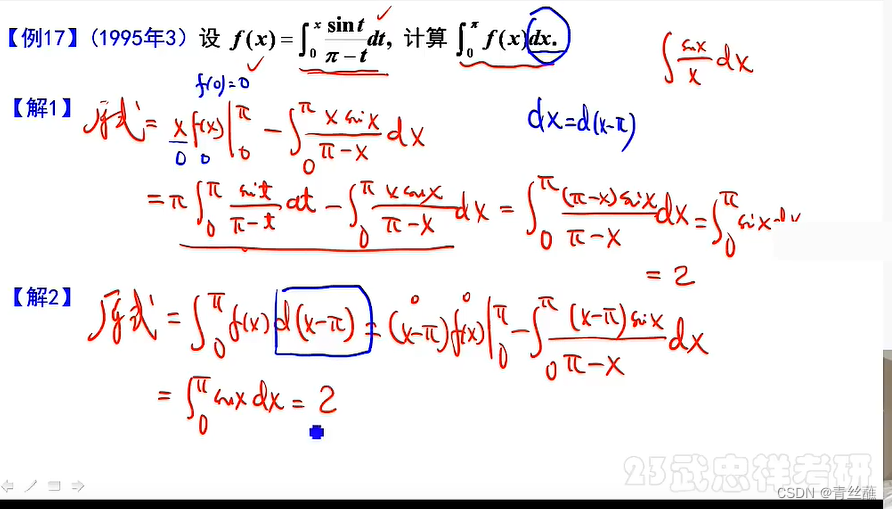 【例17】(1995年3) 设 f(x) = ∫₀ˣ sin t/(π − t) dt, 计算 ∫₀^π f(x)dx.
∫ sin x/x dx
f(0)=0
【解1】 原式 = x f(x) |₀^π − ∫₀^π x sin x/(π − x) dx
0 0
dx = d(x−π)
= π ∫₀^π sin t/(π − t) dt − ∫₀^π x sin x/(π − x) dx = ∫₀^π (π−x) sin x/(π − x) dx = ∫₀^π sin x dx
= 2
【解2】 原式 = ∫₀^π f(x) d(x−π) = (x−π) f(x) |₀^π − ∫₀^π (x−π) sin x/(π − x) dx
0 0
= ∫₀^π sin x dx = 2
23武忠祥考研
CSDN @青丝蘸